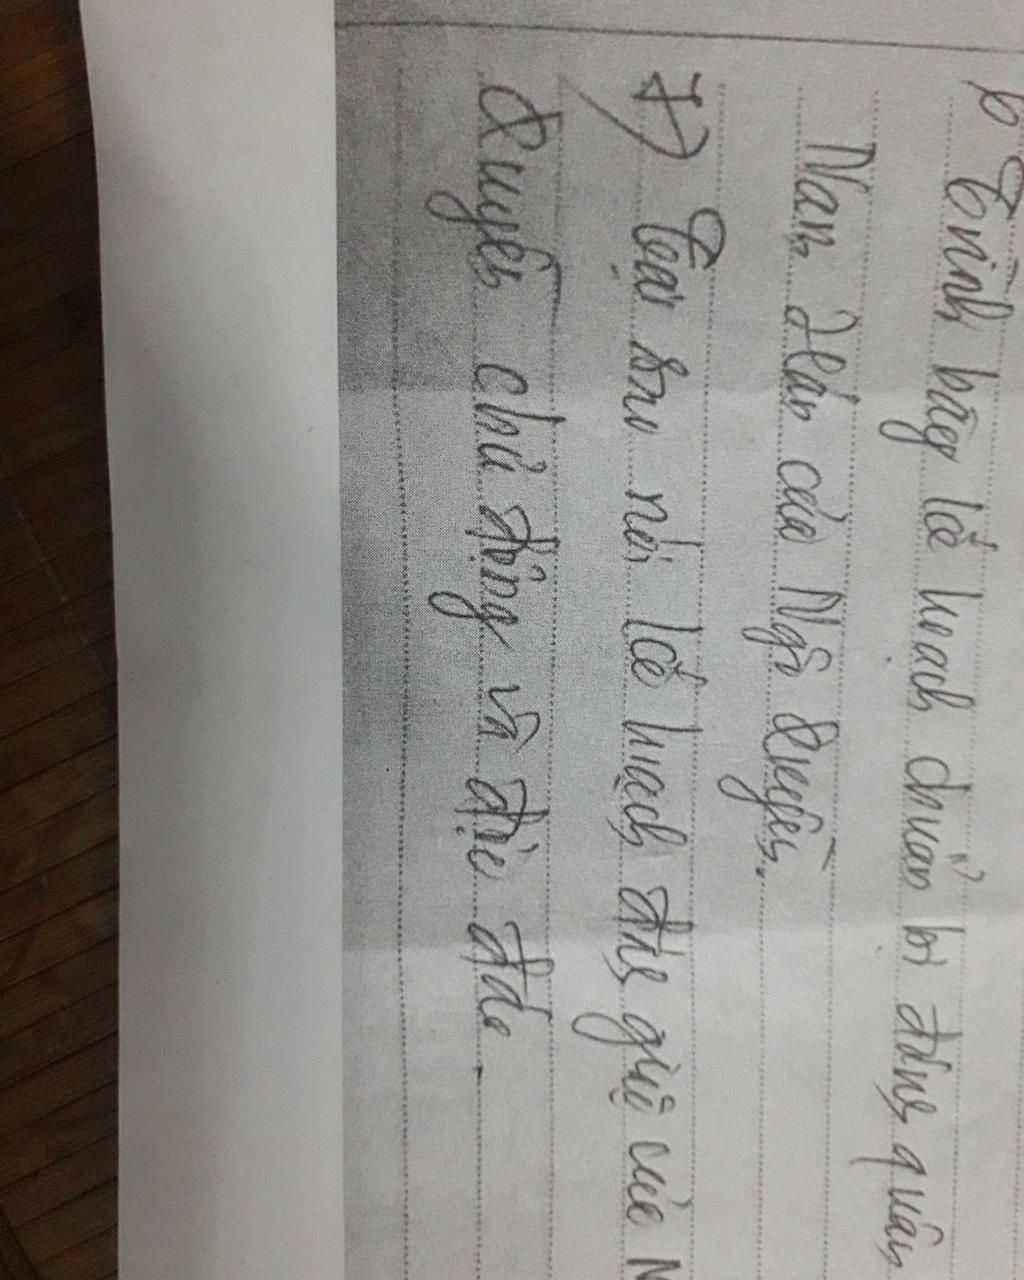 6 Trình bày kế hoạch chuẩn bị đánh quân
Nam Hán của Ngô Quyền.
7) Tại sao nói kế hoạch đánh giặc của N
Quyền chủ động và độc đáo.